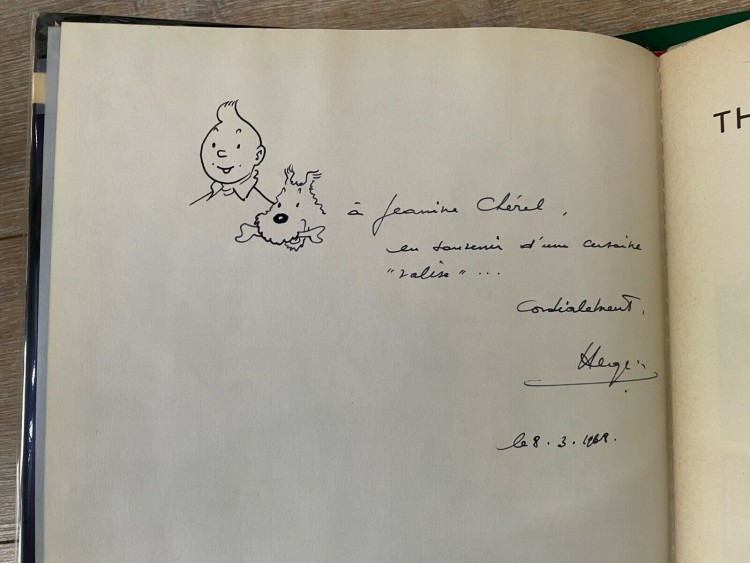 à Jeanine Chérel,
en souvenir d'une certaine
"valise" ...
Cordialement,
Hergé
le 8.3.1968.
TH